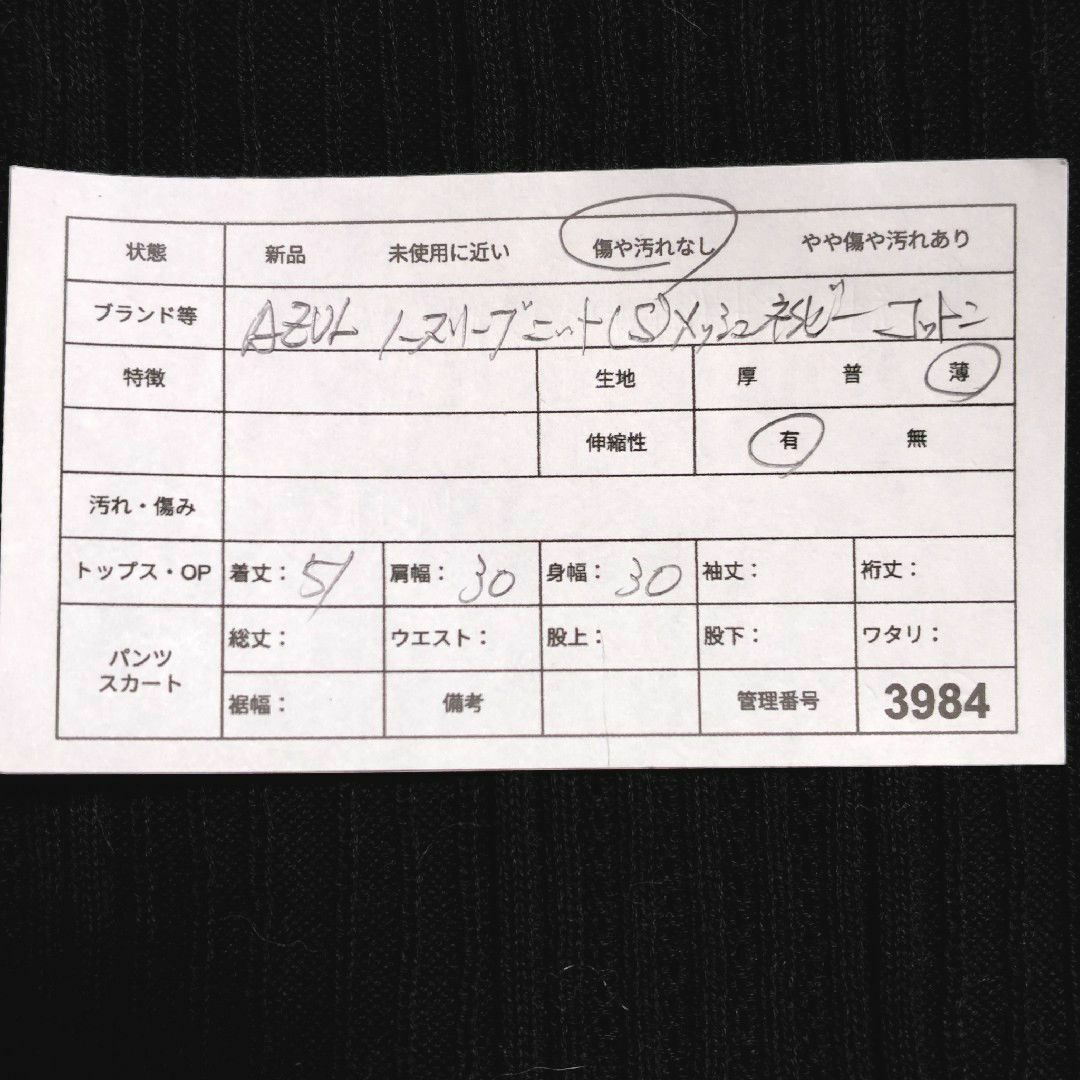 状態 新品 未使用に近い 傷や汚れなし やや傷や汚れあり
ブランド等 AZUL ノースリーブニット(S)メッシュ ネイビー コットン
特徴 生地 厚 普 薄
伸縮性 有 無
汚れ・傷み
トップス・OP 着丈: 51 肩幅: 30 身幅: 30 袖丈: 裄丈:
パンツ スカート 総丈: ウエスト: 股上: 股下: ワタリ:
裾幅: 備考 管理番号 3984